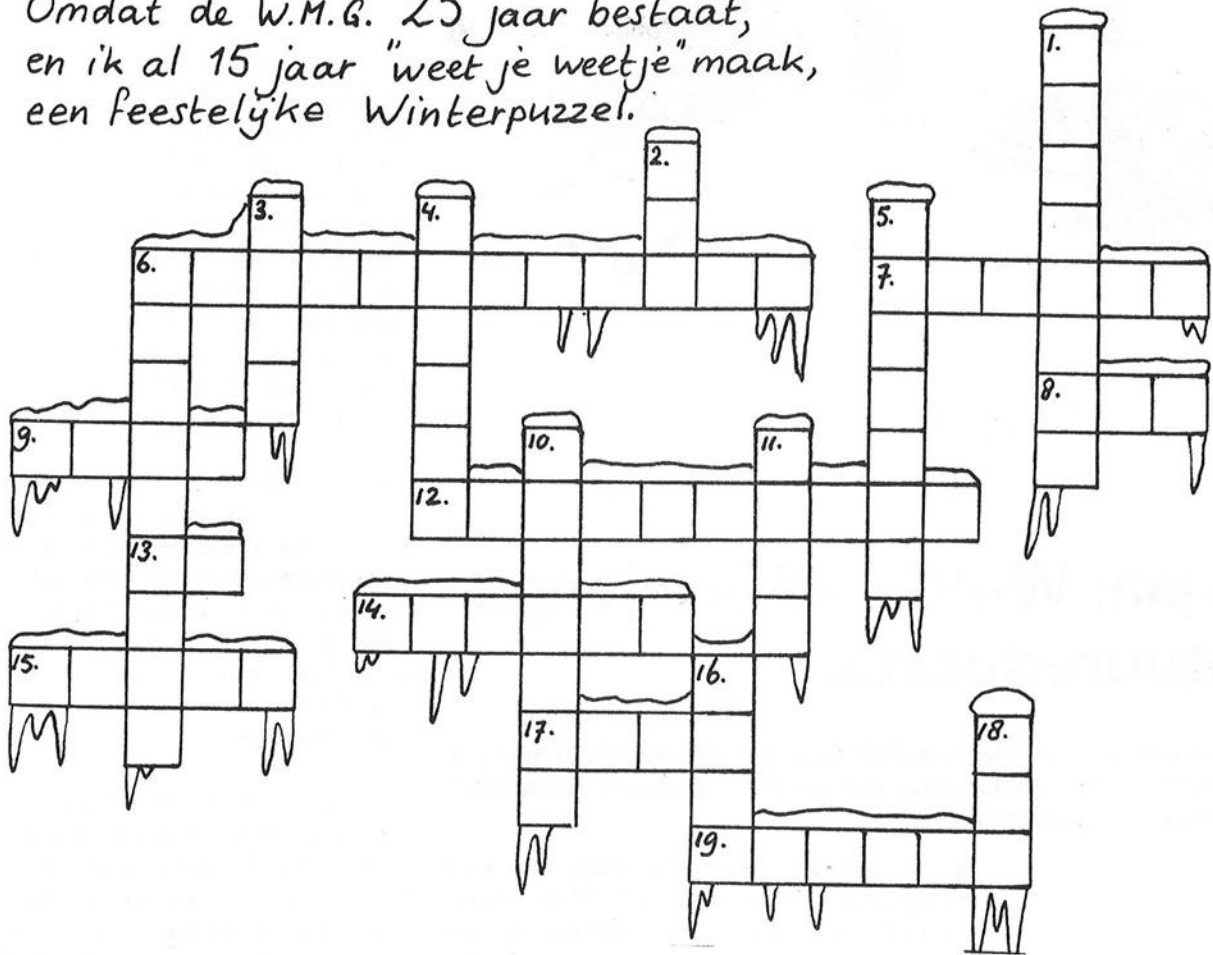 Omdat de W.M.G. 25 jaar bestaat,
en ik al 15 jaar "weet je weetje" maak,
een feestelijke Winterpuzzel.
1.
2.
3.
4.
5.
6.
7.
8.
9.
10.
11.
12.
13.
14.
15.
16.
17.
18.
19.